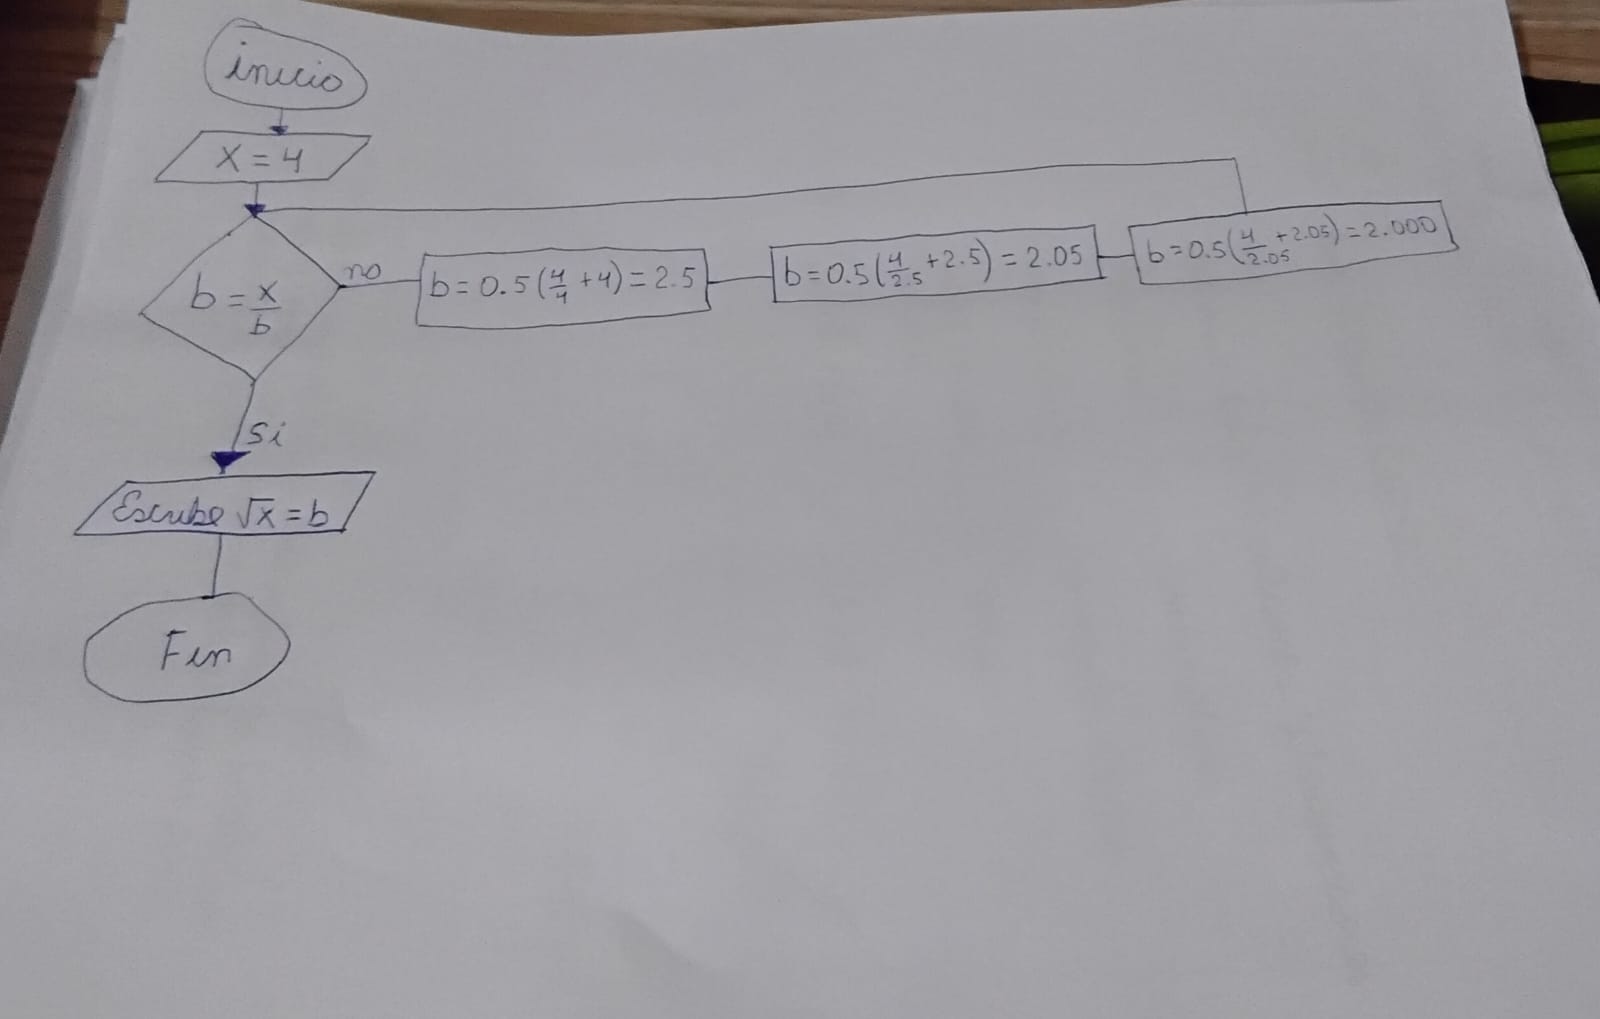 inicio
X = 4
b = x/b
no
b = 0.5 (4/4 + 4) = 2.5
b = 0.5 (4/2.5 + 2.5) = 2.05
b = 0.5 (4/2.05 + 2.05) = 2.000
Si
Escribe √x = b
Fin